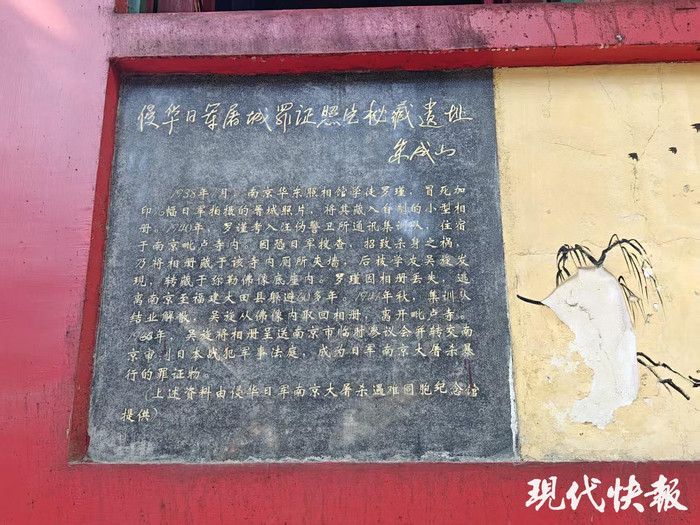 侵华日军屠城罪证照片秘藏遗址
朱成山
1938年 月，南京华东照相馆学徒罗瑾，冒死加
印 幅日军拍摄的屠城照片，将其藏入自制的小型相
册。1940年，罗谨考入汪伪警卫所通讯集训队，住宿
于南京毗卢寺内。因恐日军搜查，招致杀身之祸，
乃将相册藏于该寺内厕所夹墙，后被学友吴旋发
现，转藏于弥勒佛像底座内。罗瑾因相册丢失，逃
离南京至福建大田县躲避 多年。1941年秋，集训队
结业解散，吴旋从佛像内取回相册，离开毗卢寺。
19 年，吴旋将相册呈送南京市临时参议会并转交南
京审判日本战犯军事法庭，成为日军南京大屠杀暴
行的罪证物
（上述资料由侵华日军南京大屠杀遇难同胞纪念馆
提供）
现代快報